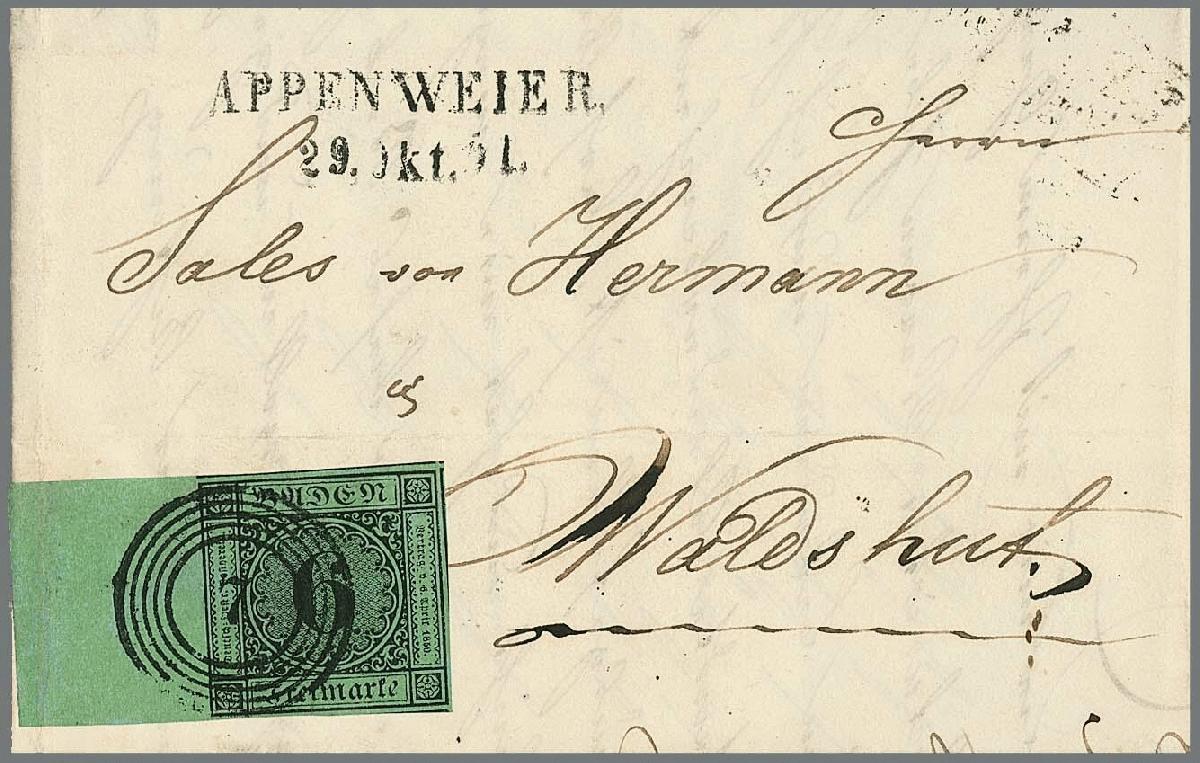 APPENWEIER.
29. Okt. 51.
Herrn
Sales von Hermann
Waldshut.
BADEN
6
Freimarke